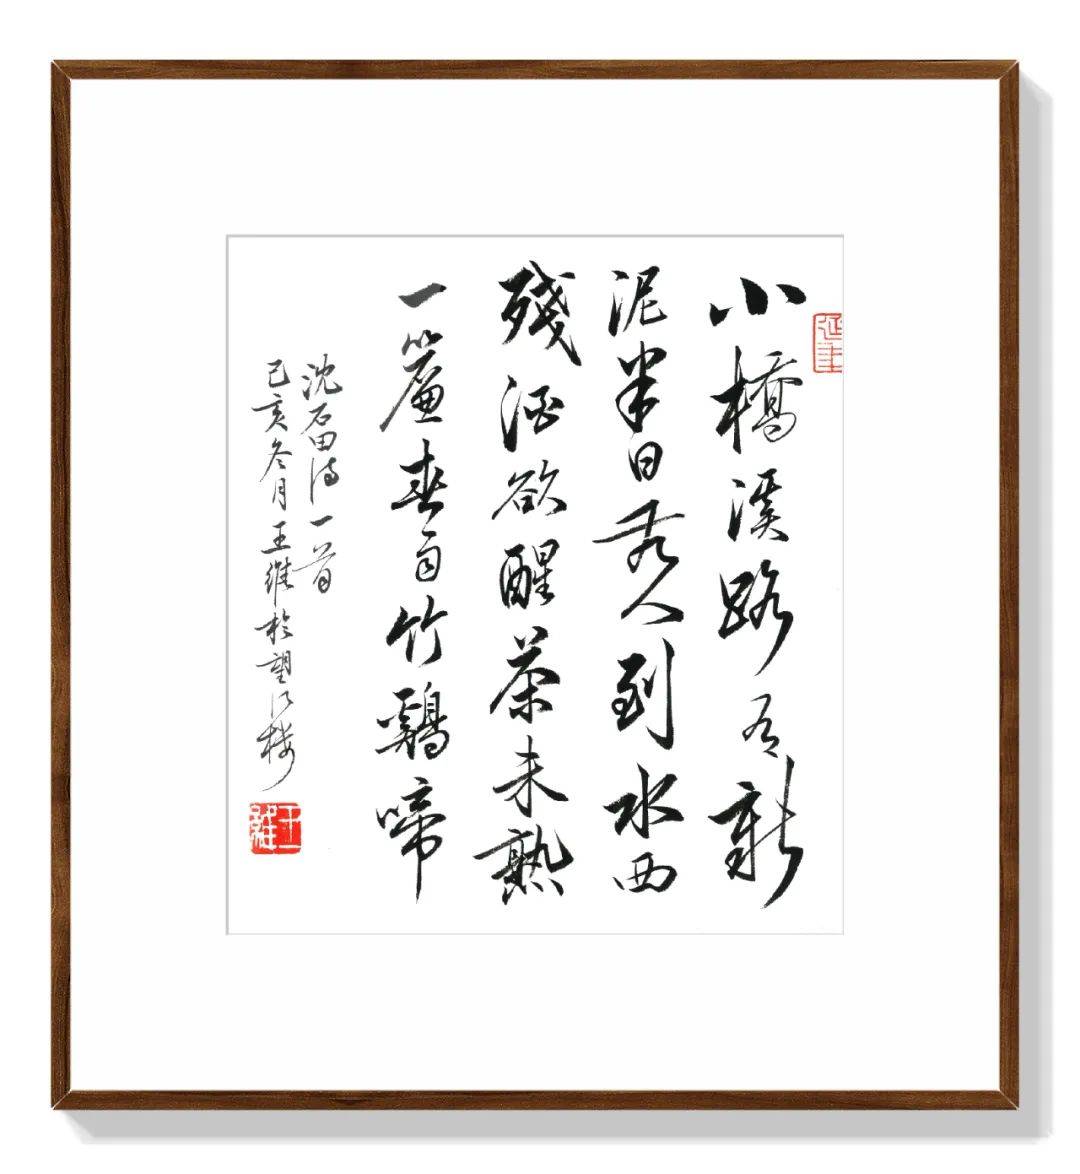 小橋溪路有新
泥半日無人到水西
殘酒欲醒茶未熟
一簾春雨竹鷄啼
沈石田詩一首
己亥冬月王維於望江樓
王維